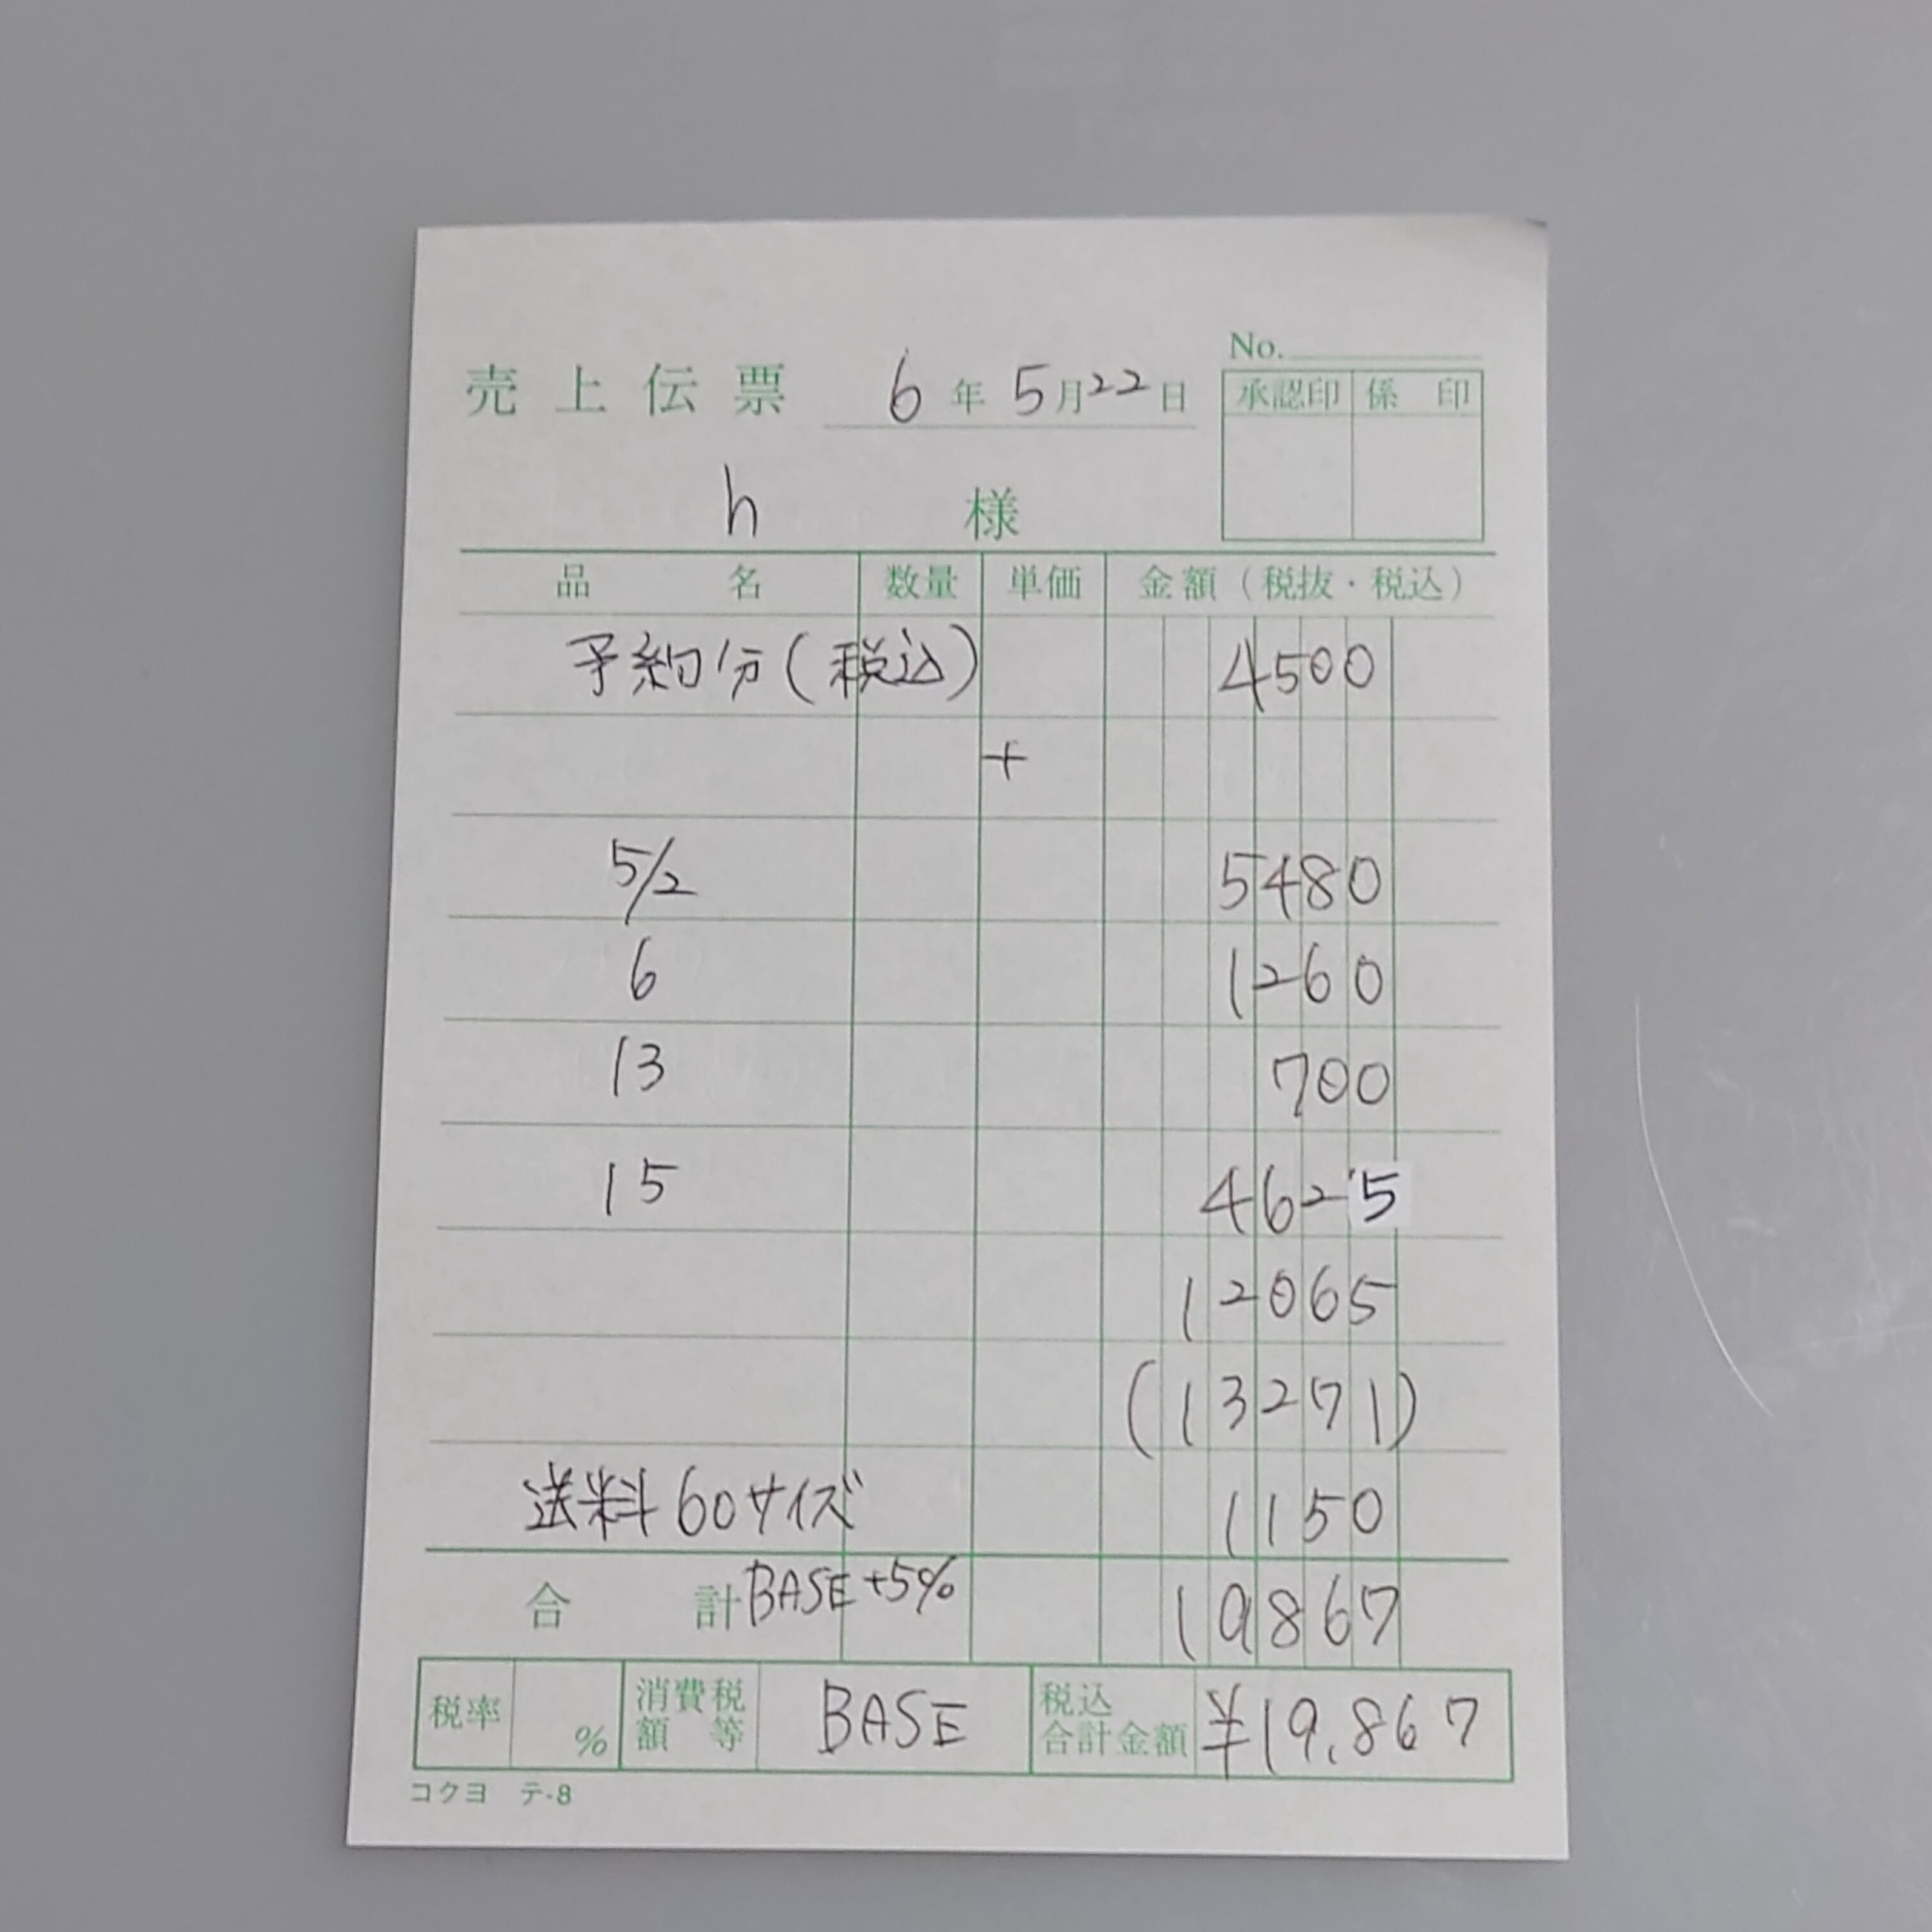 No.
売上伝票 6年5月22日
承認印 係印
h 様
品名 数量 単価 金額(税抜・税込)
予約分(税込) 4500
+
5/2 5480
6 1260
13 700
15 4625
12065
(13271)
送料60サイズ 1150
合計 BASE+5% 19867
税率 % 消費税額等 BASE 税込合計金額 ¥19,867
コクヨ テ-8